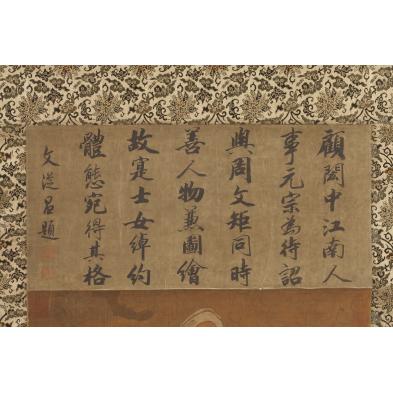 顧閎中江南人
事元宗為待詔
與周文矩同時
善人物兼圖繪
故寔士女綽約
體態宛得其格
文從昌題